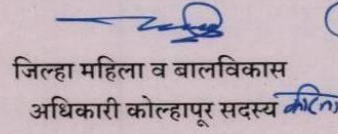 जिल्हा महिला व बालविकास
अधिकारी कोल्हापूर सदस्य